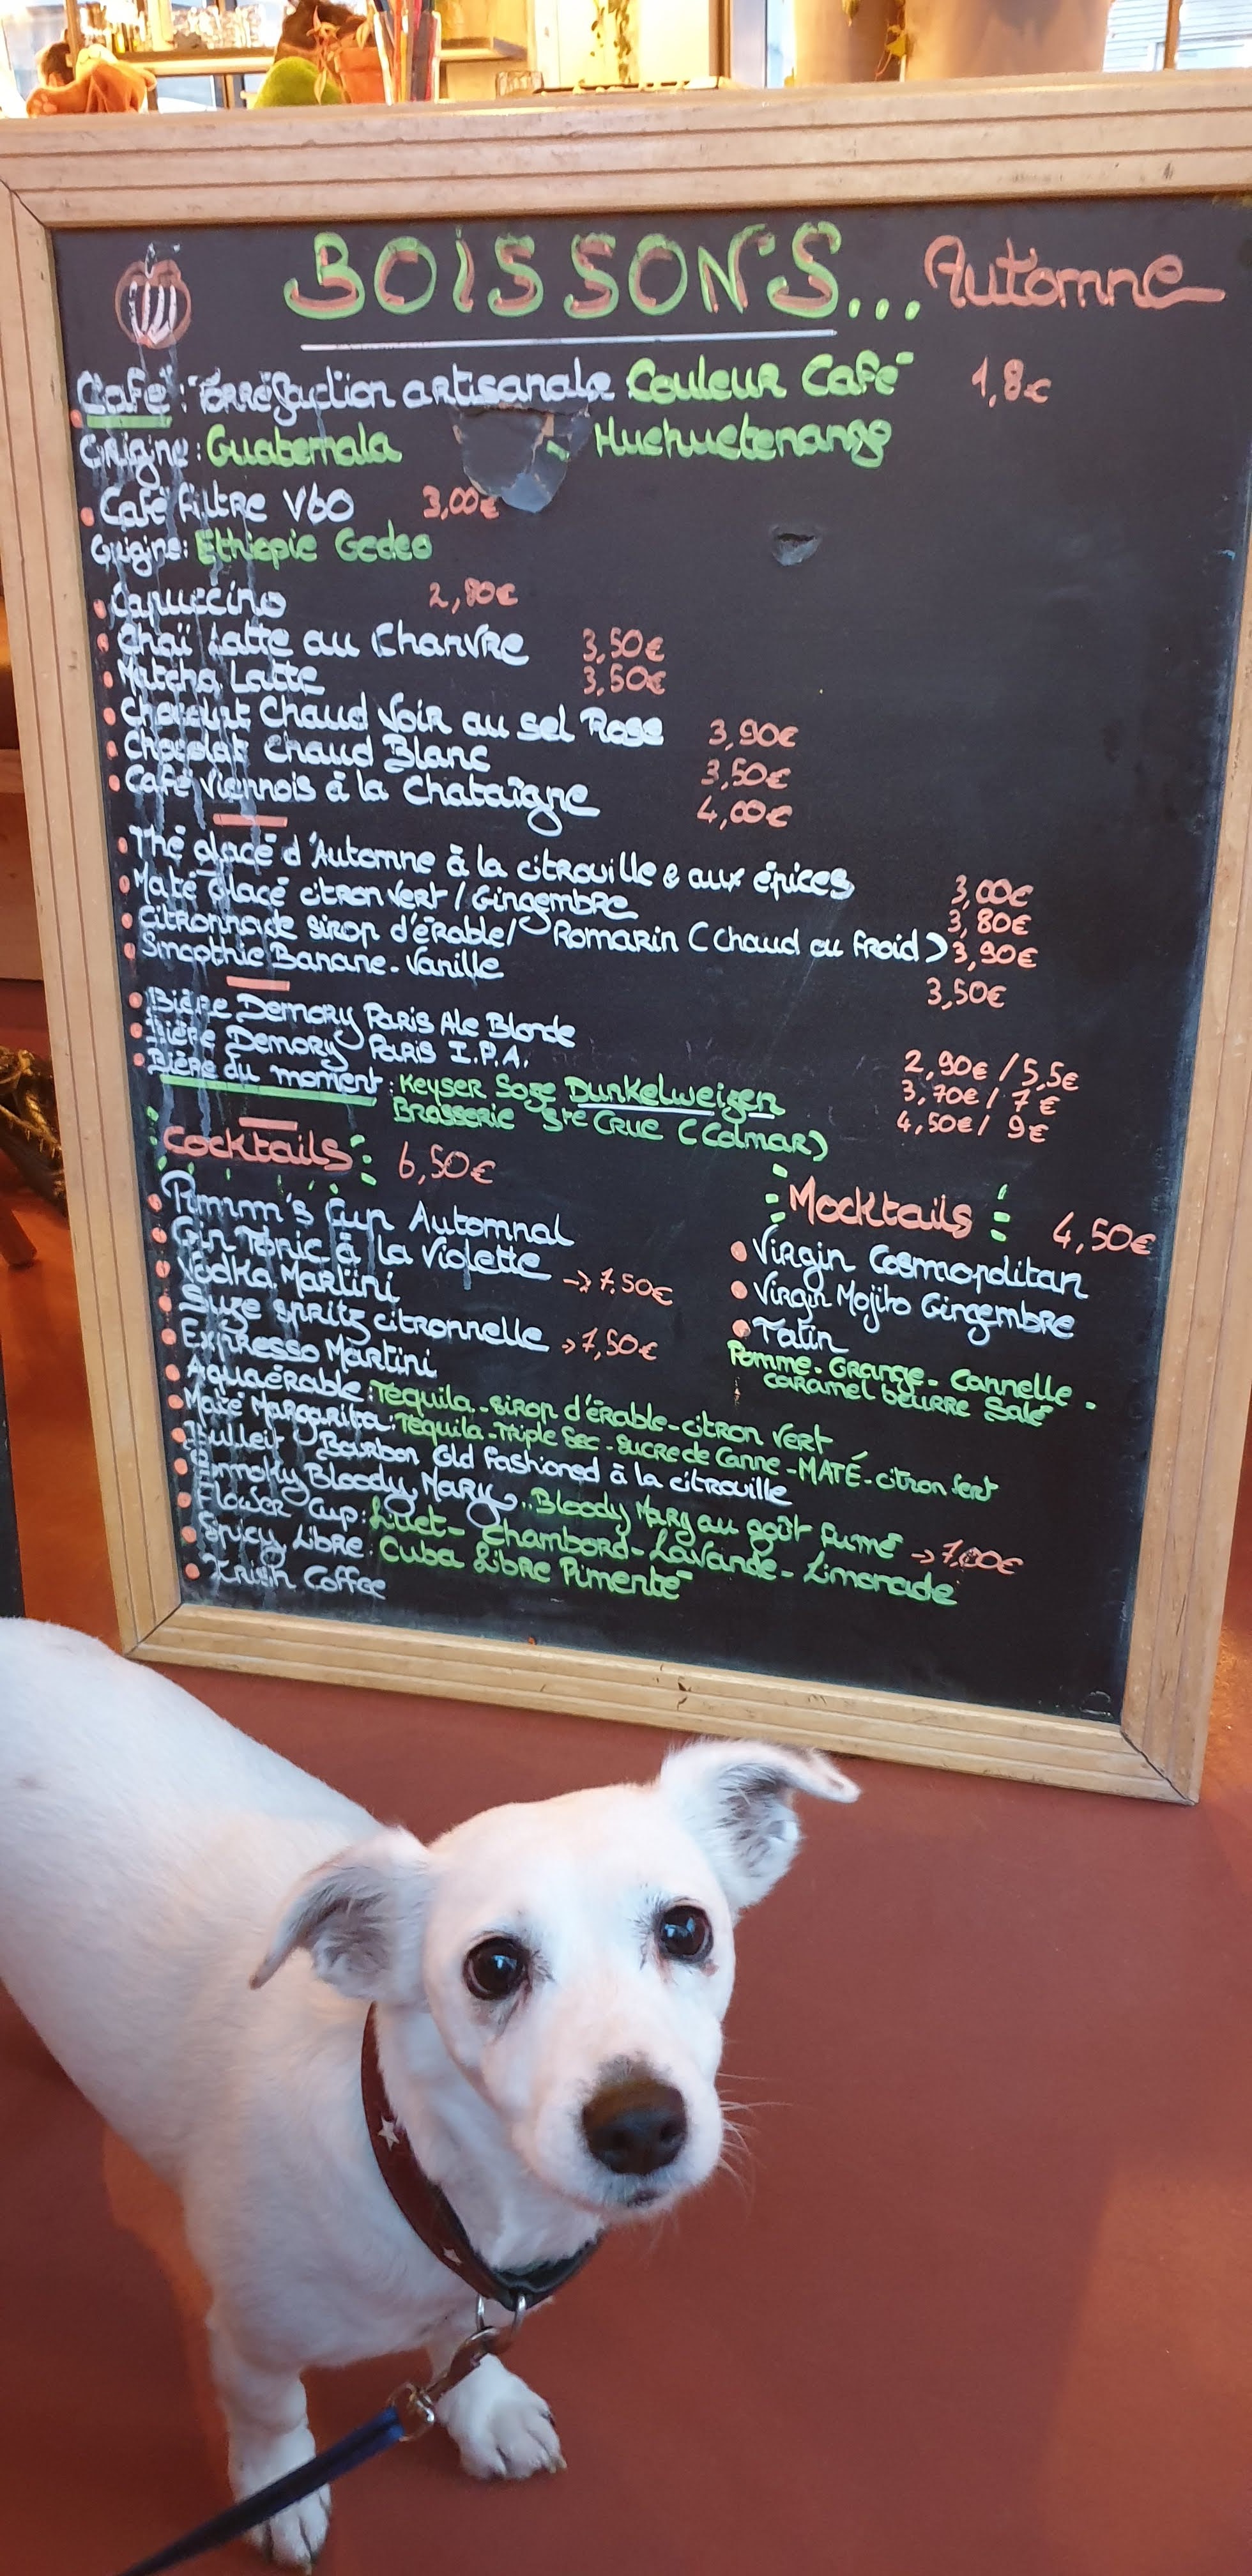 BOISSONS... Automne
Café : Torréfaction artisanale Couleur Café 1,8€
Origine : Guatemala - Huehuetenango
Café filtre V60 3,00€
Origine: Ethiopie Gedeo
Capuccino 2,80€
Chaï Latte au Chanvre 3,50€
Matcha Latte 3,50€
Chocolat Chaud Noir au sel Rose 3,90€
Chocolat Chaud Blanc 3,50€
Café viennois à la Chataîgne 4,00€
Thé glacé d'Automne à la citrouille & aux épices 3,00€
Maté glacé citron vert / Gingembre 3,80€
Citronnade sirop d'érable / Romarin (Chaud ou froid) 3,90€
Smoothie Banane - Vanille 3,50€
Bière Demory Paris Ale Blonde 2,90€ / 5,5€
Bière Demory Paris I.P.A. 3,70€ / 7€
Bière du moment : Keyser Soze Dunkelweizen 4,50€ / 9€
Brasserie Ste Cruc (Colmar)
Cocktails : 6,50€
Pimm's Cup Automnal
Gin Tonic à la Violette -> 7.50€
Vodka Martini
Suze spritz citronnelle -> 7,50€
Expresso Martini
Aquaérable : Tequila - sirop d'érable - citron vert
Maté Margarita : Tequila - Triple Sec - sucre de Canne - MATÉ - citron vert
Bulleit Bourbon Old Fashioned à la citrouille
Smoky Bloody Mary .. Bloody Mary au goût fumé -> 7,00€
Flower Cup : Lillet - Chambord - Lavande - Limonade
Spicy Libre : Cuba Libre Pimenté
Irish Coffee
Mocktails : 4,50€
Virgin Cosmopolitan
Virgin Mojito Gingembre
Tatin
Pomme - Orange - Cannelle -
caramel beurre Salé